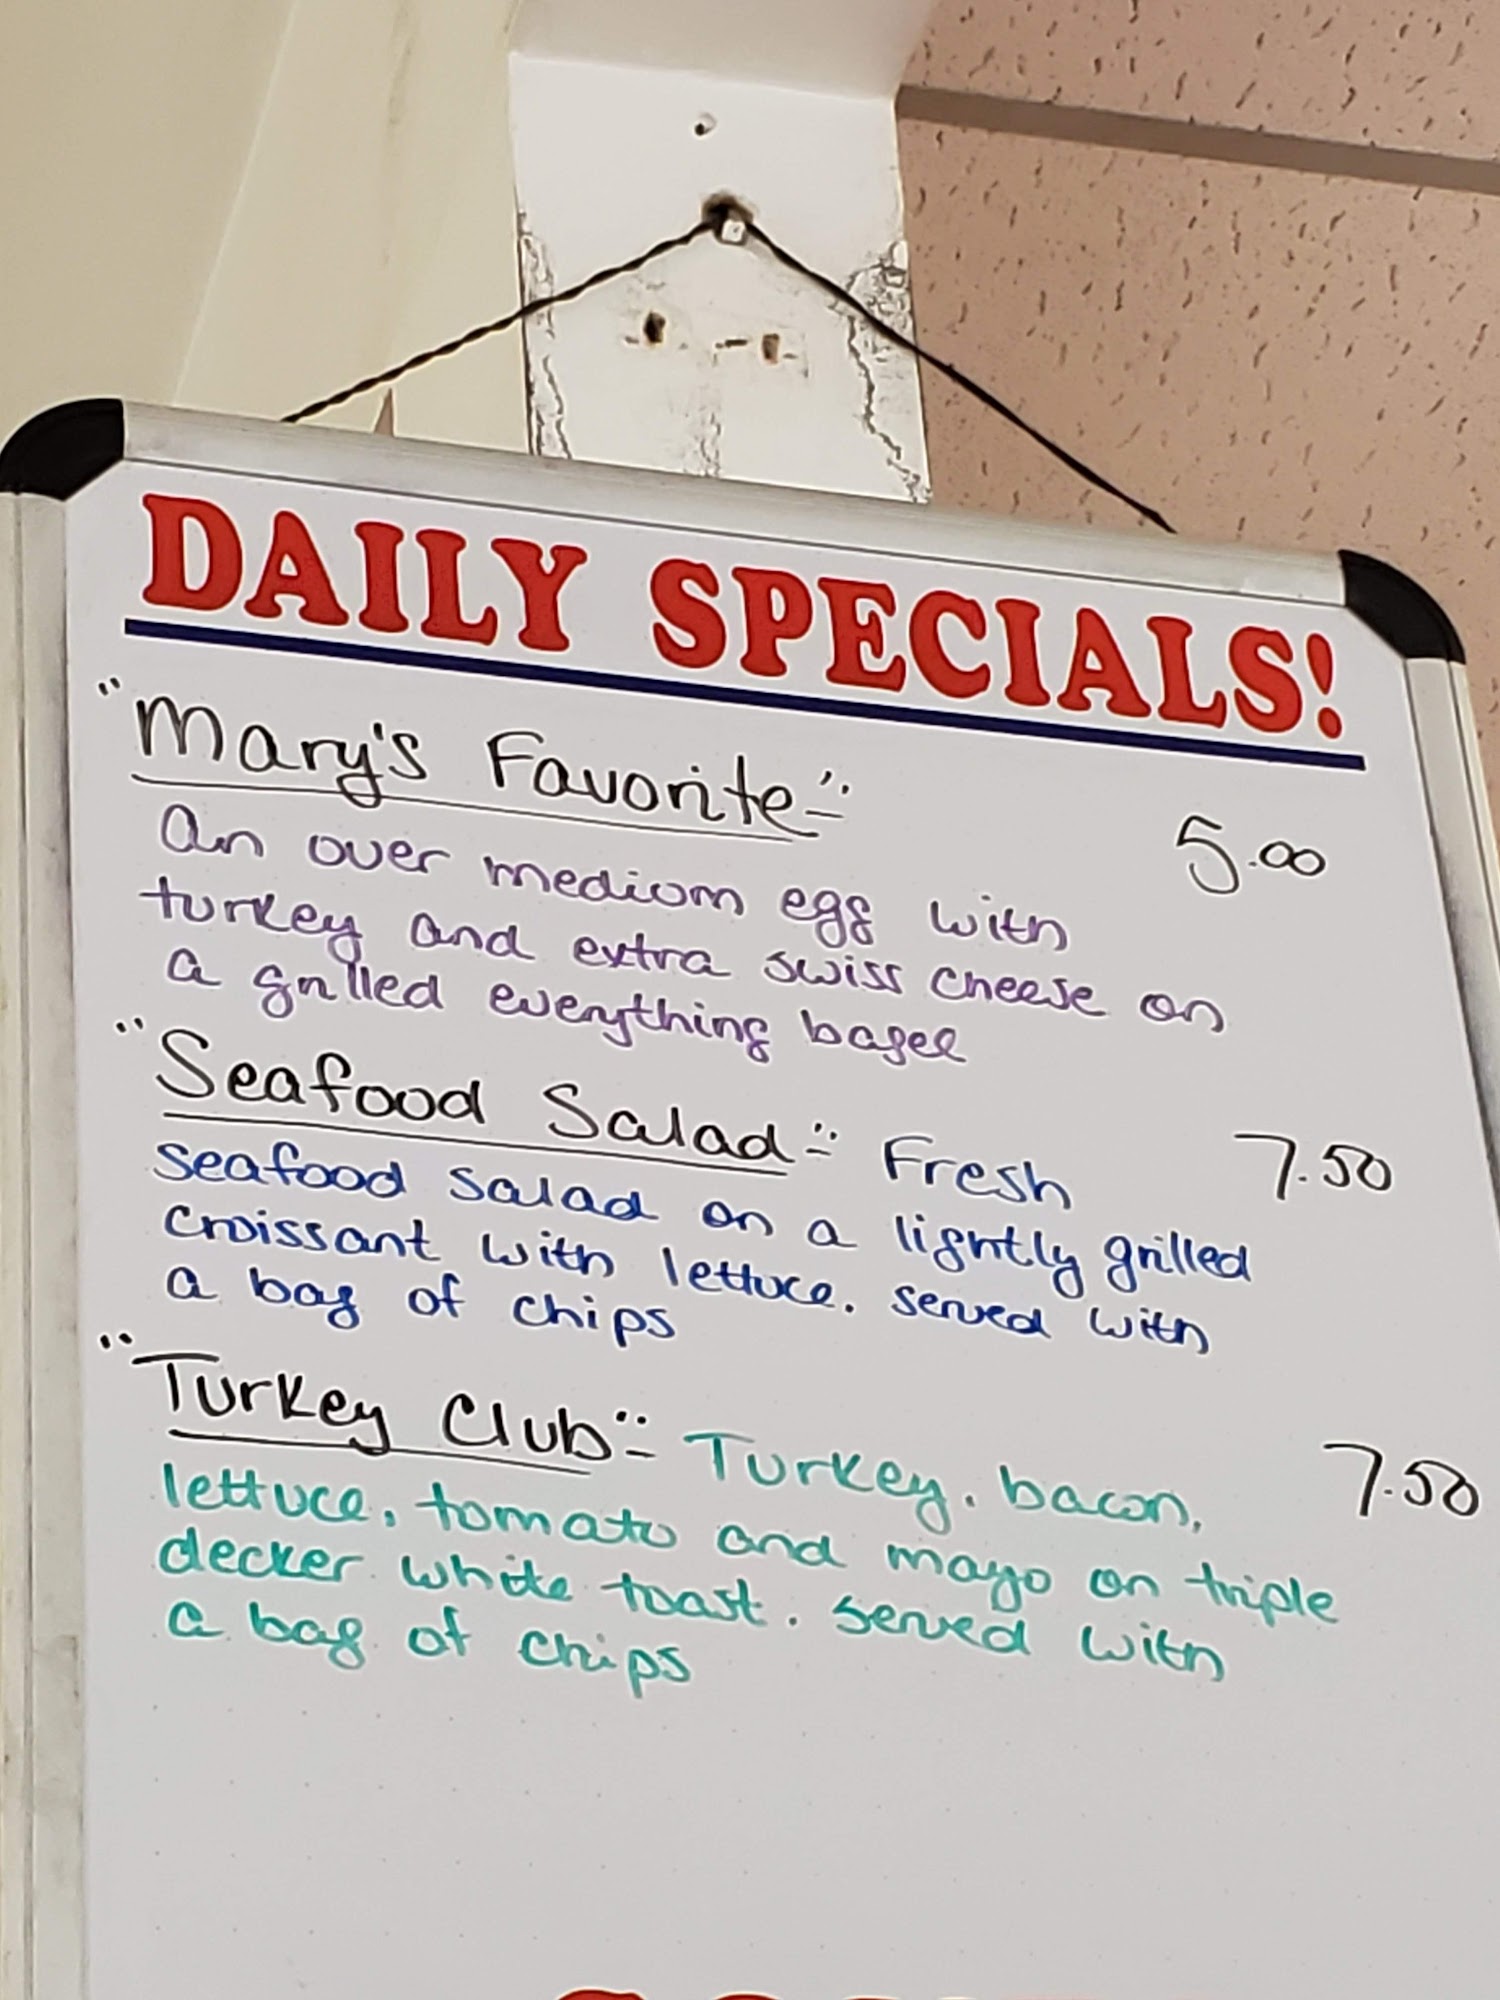 DAILY SPECIALS!
"Mary's Favorite"-
5.00
An over medium egg with
turkey and extra swiss cheese on
a grilled everything bagel
"Seafood Salad"- Fresh 7.50
seafood salad on a lightly grilled
croissant with lettuce. served with
a bag of chips
"Turkey Club"- Turkey, bacon, 7.50
lettuce, tomato and mayo on triple
decker white toast. served with
a bag of chips